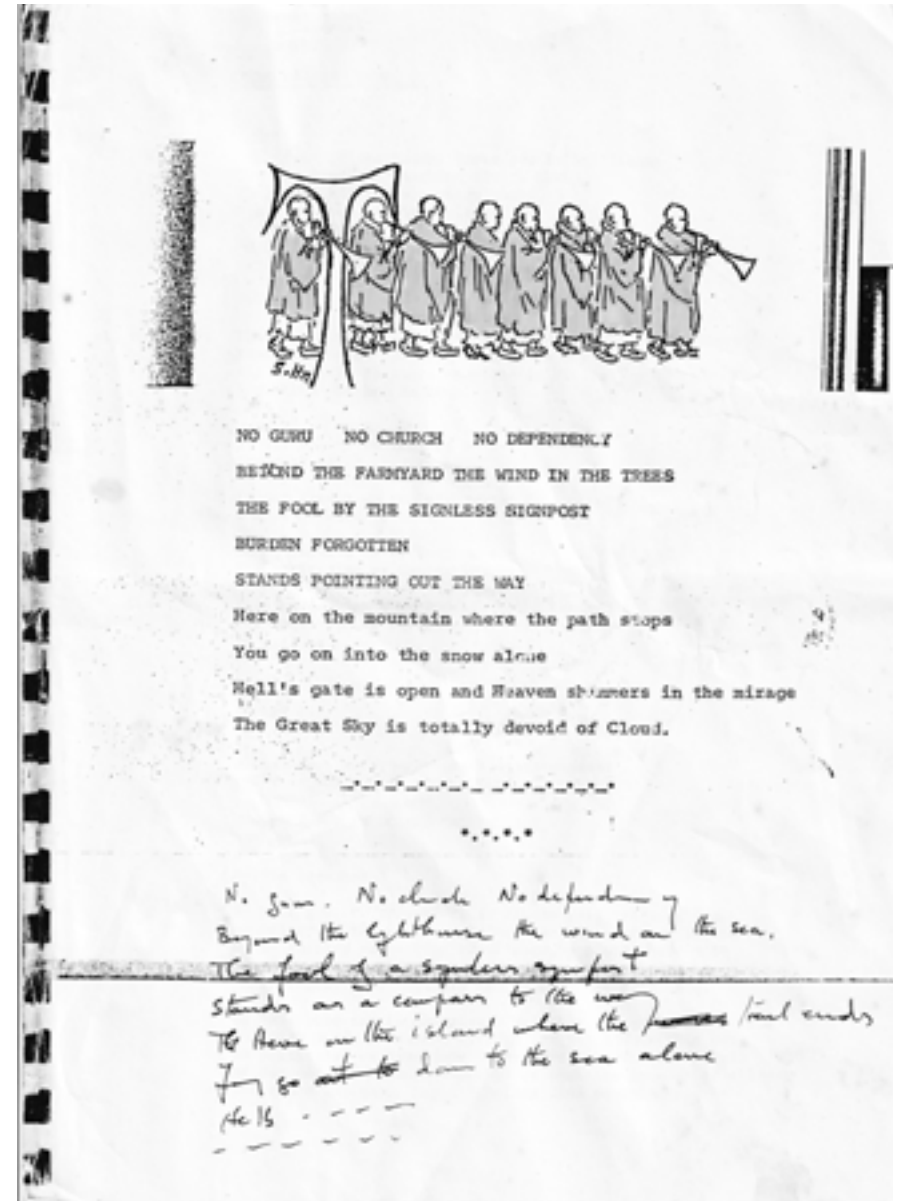 NO GURU NO CHURCH NO DEPENDENCY
BEYOND THE FARMYARD THE WIND IN THE TREES
THE FOOL BY THE SIGNLESS SIGNPOST
BURDEN FORGOTTEN
STANDS POINTING OUT THE WAY
Here on the mountain where the path stops
You go on into the snow alone
Hell's gate is open and Heaven shimmers in the mirage
The Great Sky is totally devoid of Cloud.
No guru. No church No dependency
Beyond the lighthouse the wind on the sea.
The fool by a signless signpost
stands as a compass to the way
Here on the island where the trail ends
You go down to the sea alone
Hells